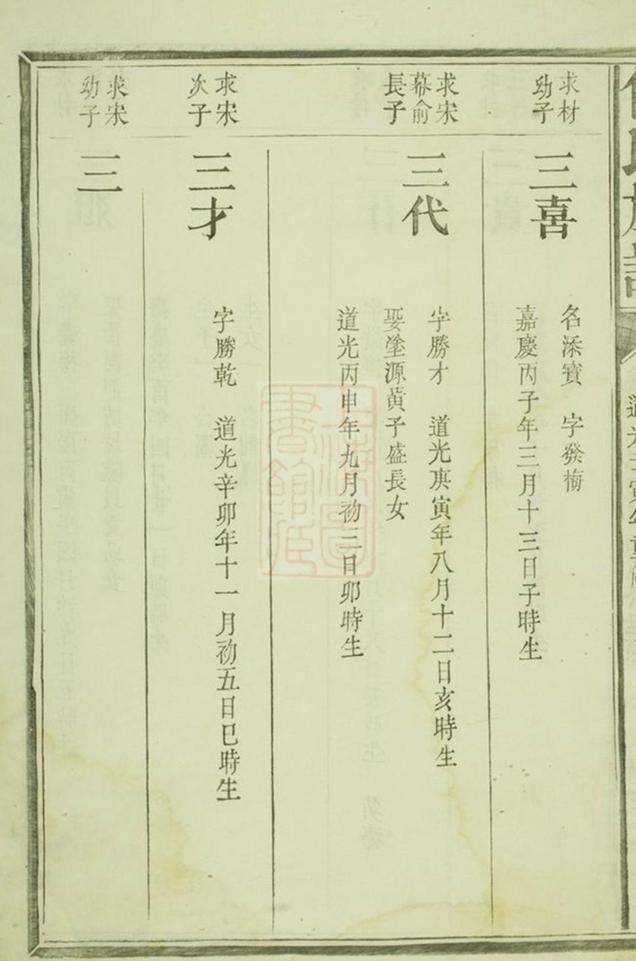 氏族譜
求材
幼子
三喜
名添寶 字發梅
嘉慶丙子年三月十三日子時生
求宋
幕俞
長子
三代
字勝才 道光庚寅年八月十二日亥時生
娶塗源黃子盛長女
道光丙申年九月初三日卯時生
求宋
次子
三才
字勝乾 道光辛卯年十一月初五日巳時生
求宋
幼子
三